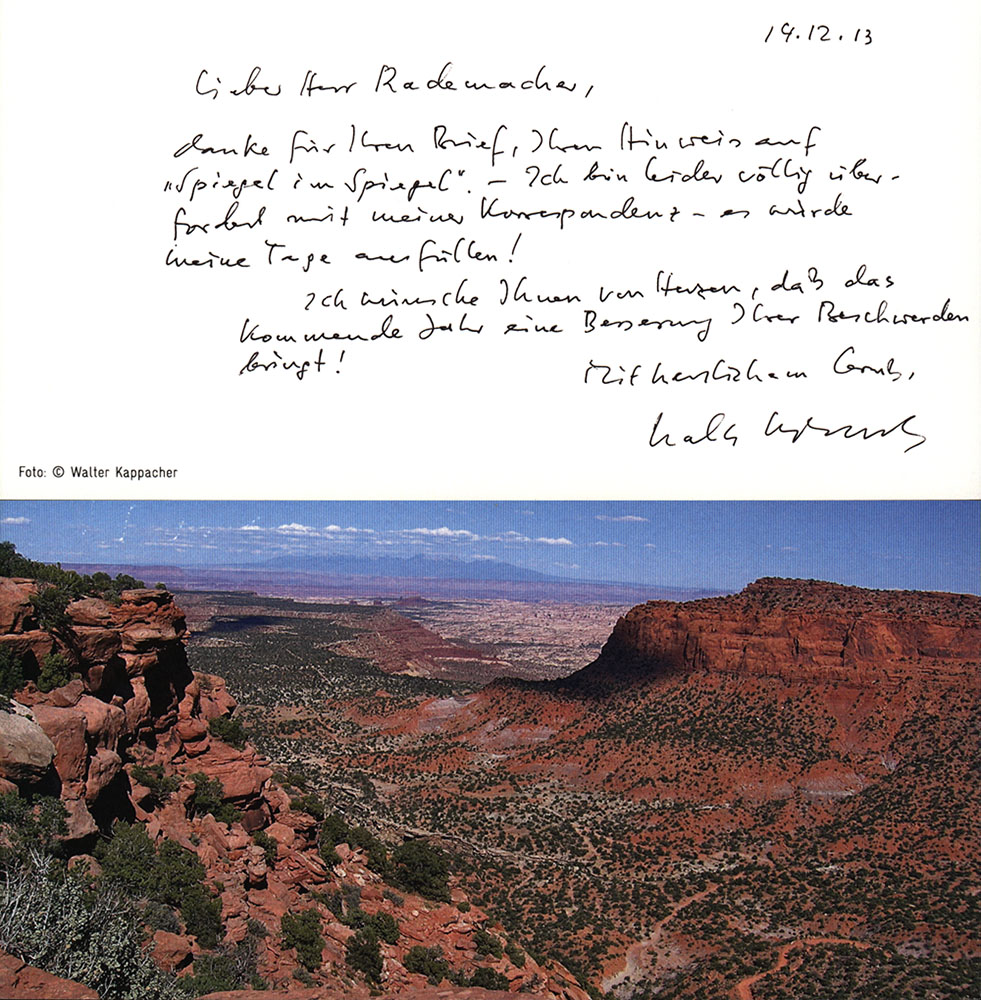 19.12.13
Lieber Herr Rademacher,
danke für Ihren Brief, Ihren Hinweis auf
„Spiegel im Spiegel“. – Ich bin leider völlig über-
fordert mit meiner Korrespondenz – es würde
meine Tage ausfüllen!
Ich wünsche Ihnen von Herzen, daß das
kommende Jahr eine Besserung Ihrer Beschwerden
bringt!
Mit herzlichem Gruß,
Walter Kappacher
Foto: © Walter Kappacher